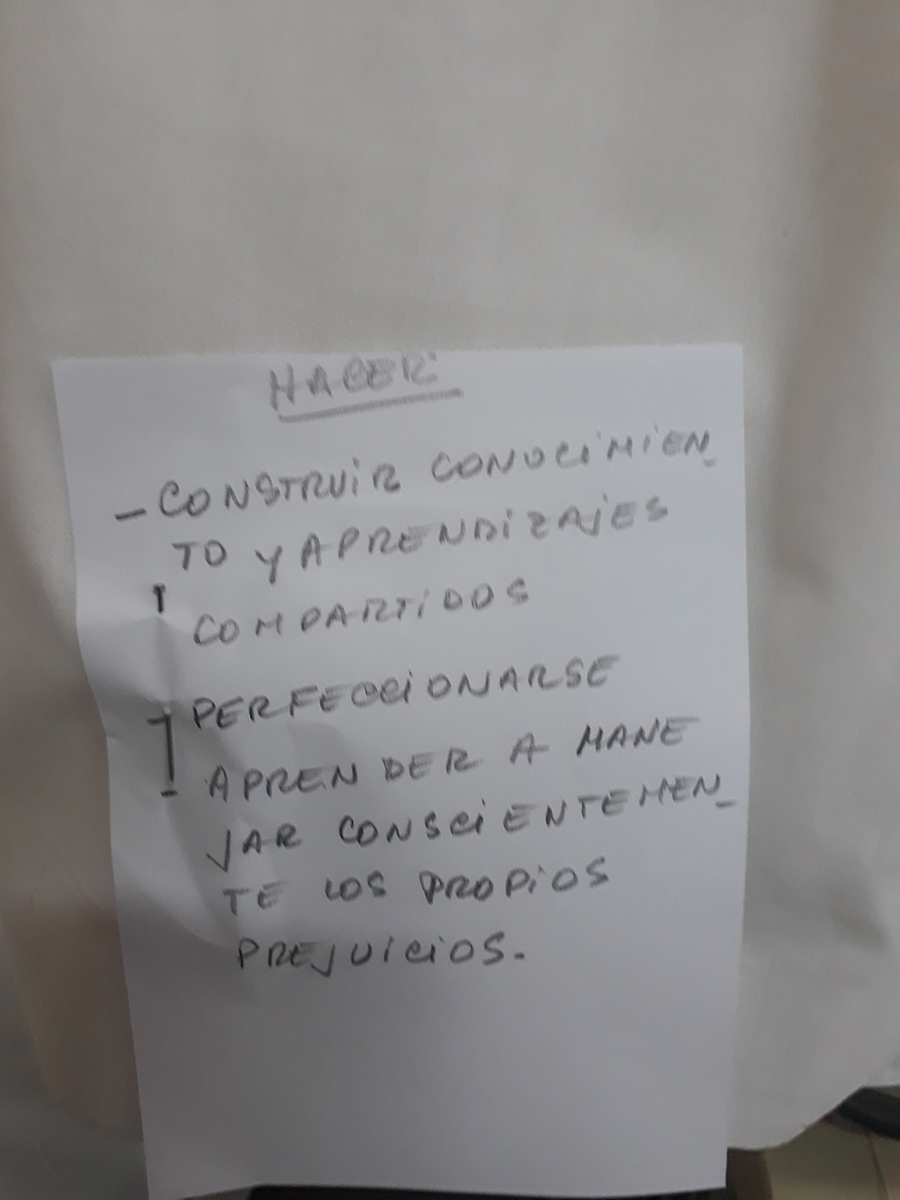 HACER
- CONSTRUIR CONOCIMIEN_
TO Y APRENDIZAJES
COMPARTIDOS
- PERFECCIONARSE
- APRENDER A MANE
JAR CONSCIENTEMEN_
TE LOS PROPIOS
PREJUICIOS.